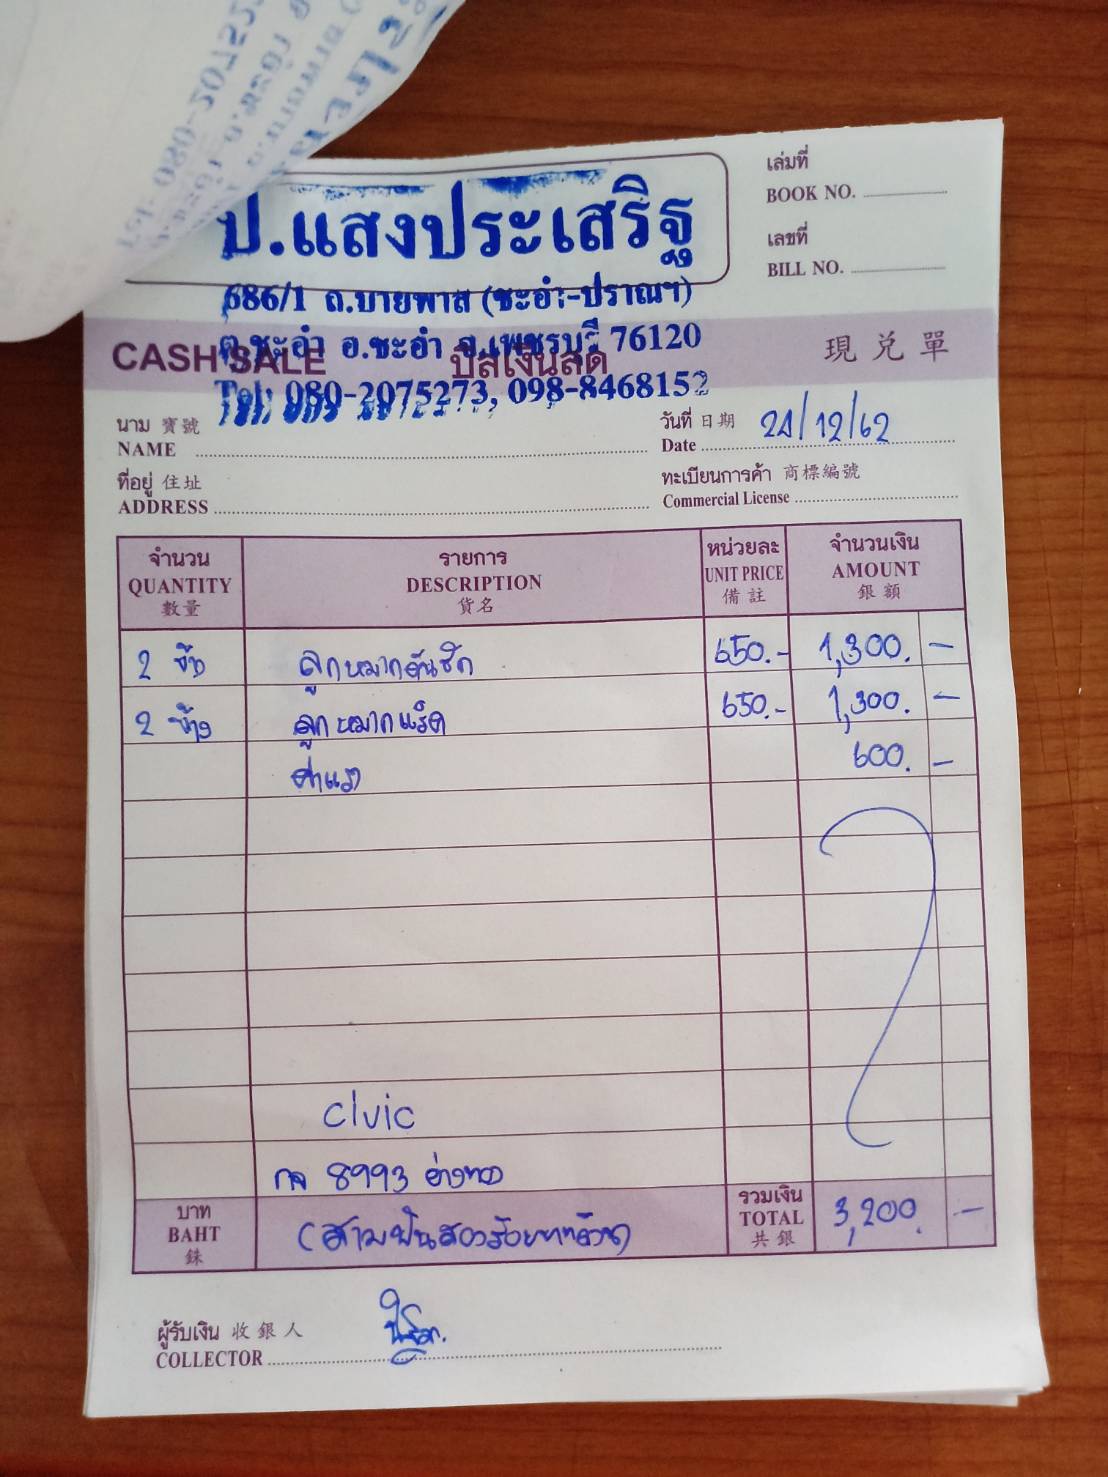 ป.แสงประเสริฐ
686/1 ถ.บายพาส (ชะอำ-ปราณฯ)
ต.ชะอำ อ.ชะอำ จ.เพชรบุรี 76120
Tel: 080-2075273, 098-8468152
เล่มที่
BOOK NO.
เลขที่
BILL NO.
CASH SALE บิลเงินสด 現兑單
นาม 寶號
NAME
วันที่ 日期 24/12/62
Date
ที่อยู่ 住址
ADDRESS
ทะเบียนการค้า 商標編號
Commercial License
จำนวน รายการ หน่วยละ จำนวนเงิน
QUANTITY DESCRIPTION UNIT PRICE AMOUNT
數量 貨名 備註 銀額
2 ลูกหมากคันชัก 650.- 1,300.-
2 ข้าง ลูกหมากแร็ค 650.- 1,300.-
ค่าแรง 600.-
civic
กจ 8993 อ่างทอง
บาท
BAHT
銖
(สามพันสองร้อยบาทถ้วน)
รวมเงิน
TOTAL
共銀
3,200.-
ผู้รับเงิน 收銀人
COLLECTOR